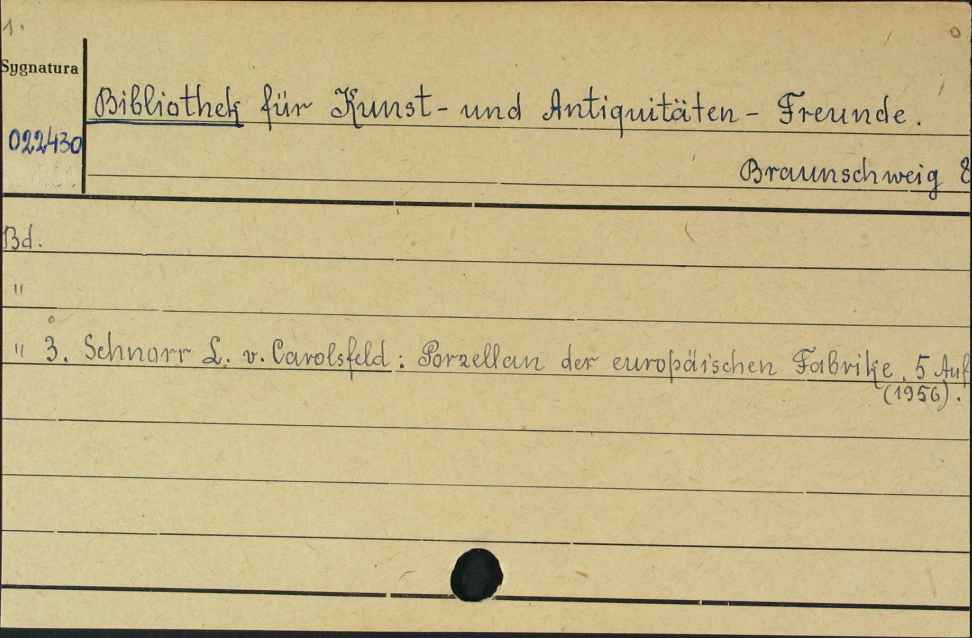 1.
Sygnatura
Bibliothek für Kunst- und Antiquitäten- Freunde.
022430
Braunschweig 8
Bd.
"
" 3. Schnorr L. v. Carolsfeld: Porzellan der europäischen Fabrike, 5 Auf
(1956).